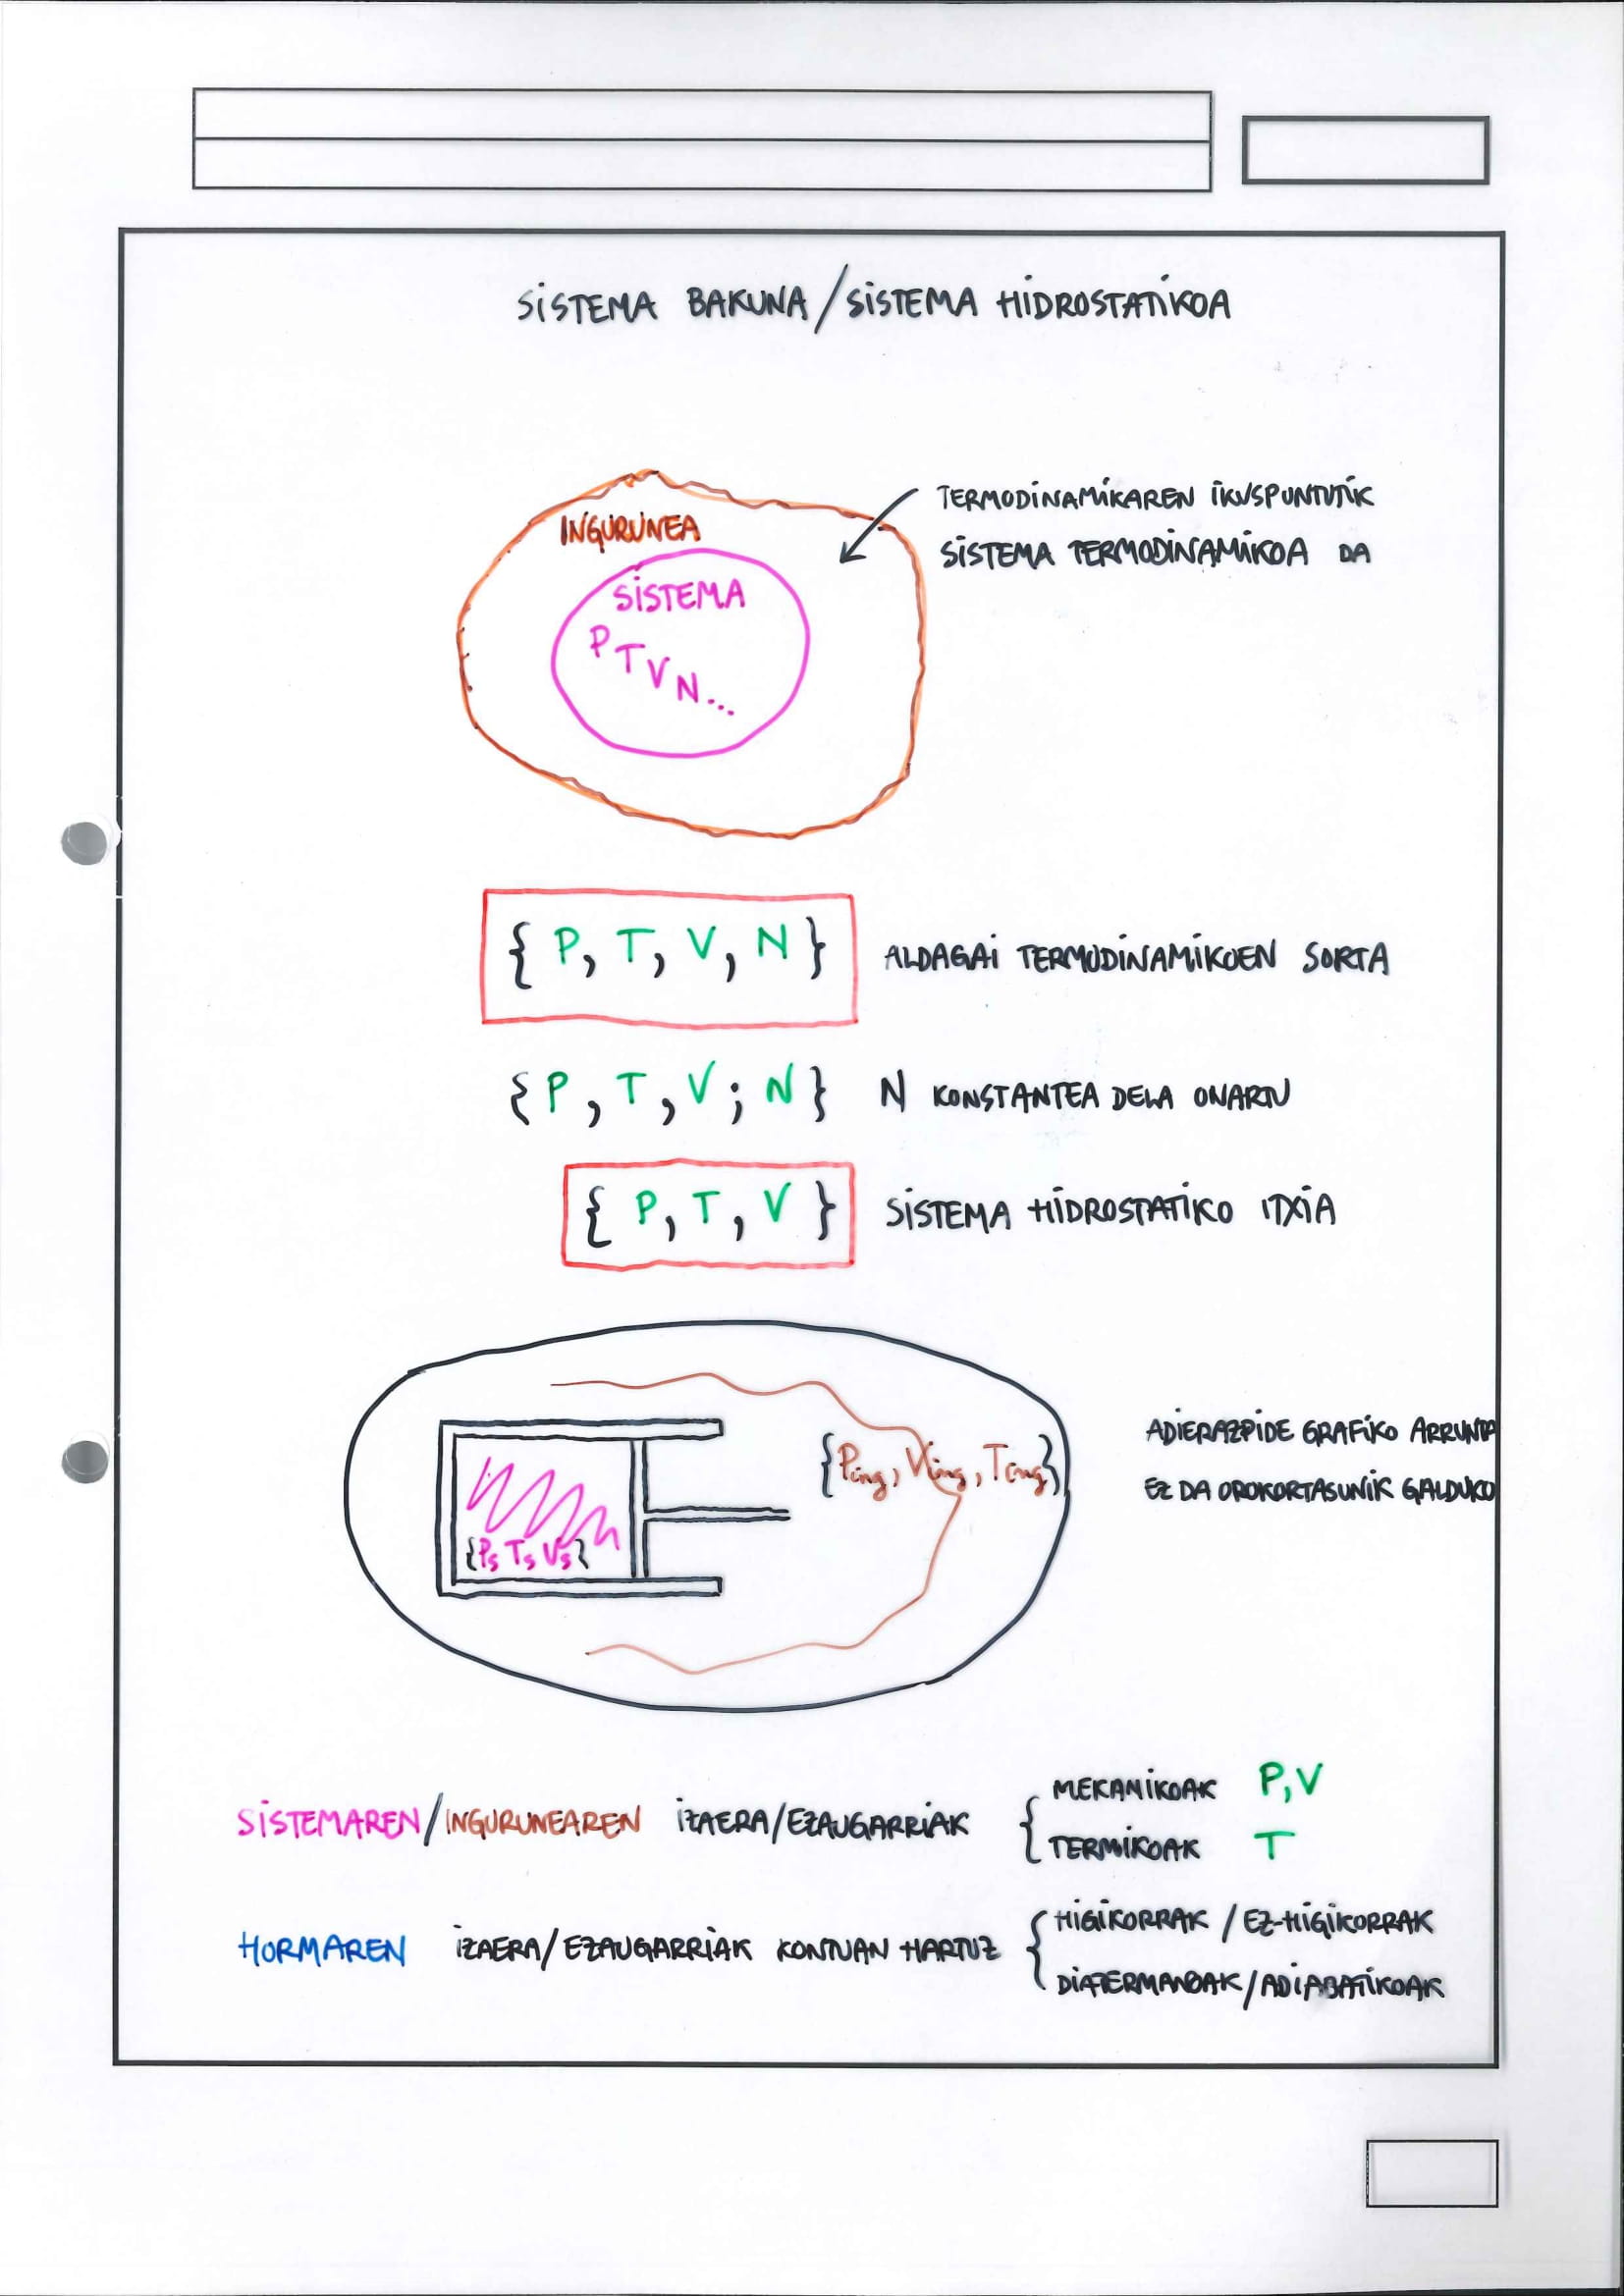 SISTEMA BAKUNA/SISTEMA HIDROSTATIKOA
TERMODINAMIKAREN IKUSPUNTUTIK
SISTEMA TERMODINAMIKOA DA
INGURUNEA
SISTEMA
P T V N...
{ P, T, V, N } ALDAGAI TERMODINAMIKOEN SORTA
{ P, T, V; N } N KONSTANTEA DELA ONARTU
{ P, T, V } SISTEMA HIDROSTATIKO ITXIA
ADIERAZPIDE GRAFIKO ARRUNTA
EZ DA OROKORTASUNIK GALDUKO
{Ping, Ving, Ting}
{Ps Ts Vs}
SISTEMAREN/INGURUNEAREN IZAERA/EZAUGARRIAK { MEKANIKOAK P,V
TERMIKOAK T
HORMAREN IZAERA/EZAUGARRIAK KONTUAN HARTUZ { HIGIKORRAK / EZ-HIGIKORRAK
DIATERMANOAK/ADIABATIKOAK